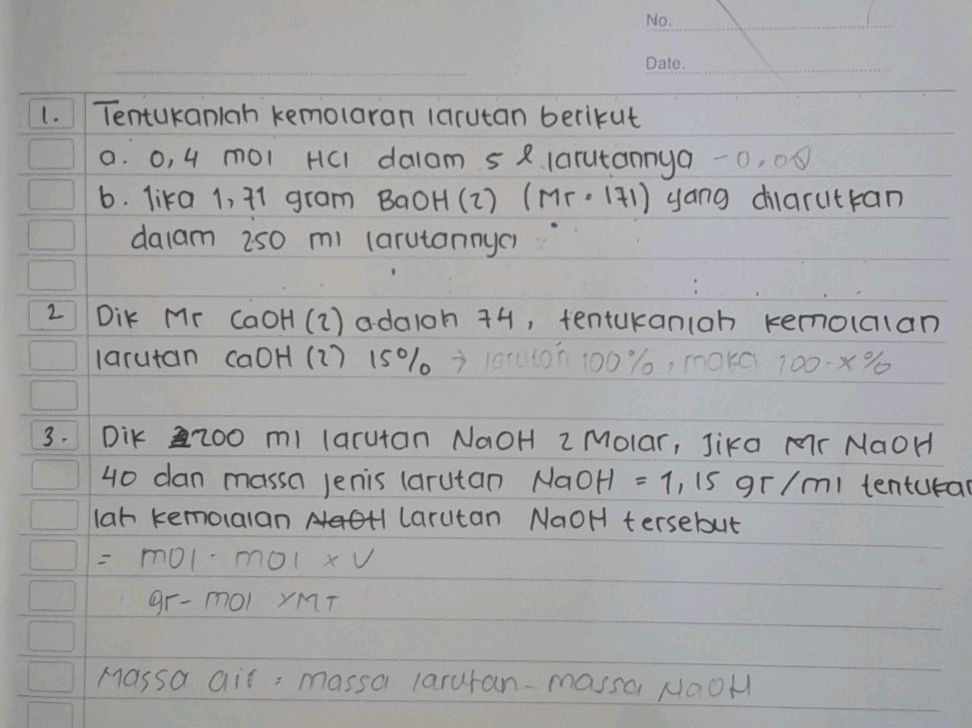 No.
Date.
1. Tentukanlah kemolaran larutan berikut
a. 0,4 mol HCl dalam 5 l larutannya - 0,08
b. Jika 1,71 gram BaOH (2) (Mr = 171) yang dilarutkan
dalam 250 ml larutannya
2 Dik Mr CaOH (2) adalah 74, tentukanlah kemolalan
larutan CaOH (2) 15% → larutan 100%, maka 100-x%
3. Dik 200 ml larutan NaOH 2 Molar, Jika Mr NaOH
40 dan massa jenis larutan NaOH = 1,15 gr/ml tentukan
lah kemolalan NaOH larutan NaOH tersebut
= mol = mol x V
gr - mol x Mr
Massa air = massa larutan - massa NaOH